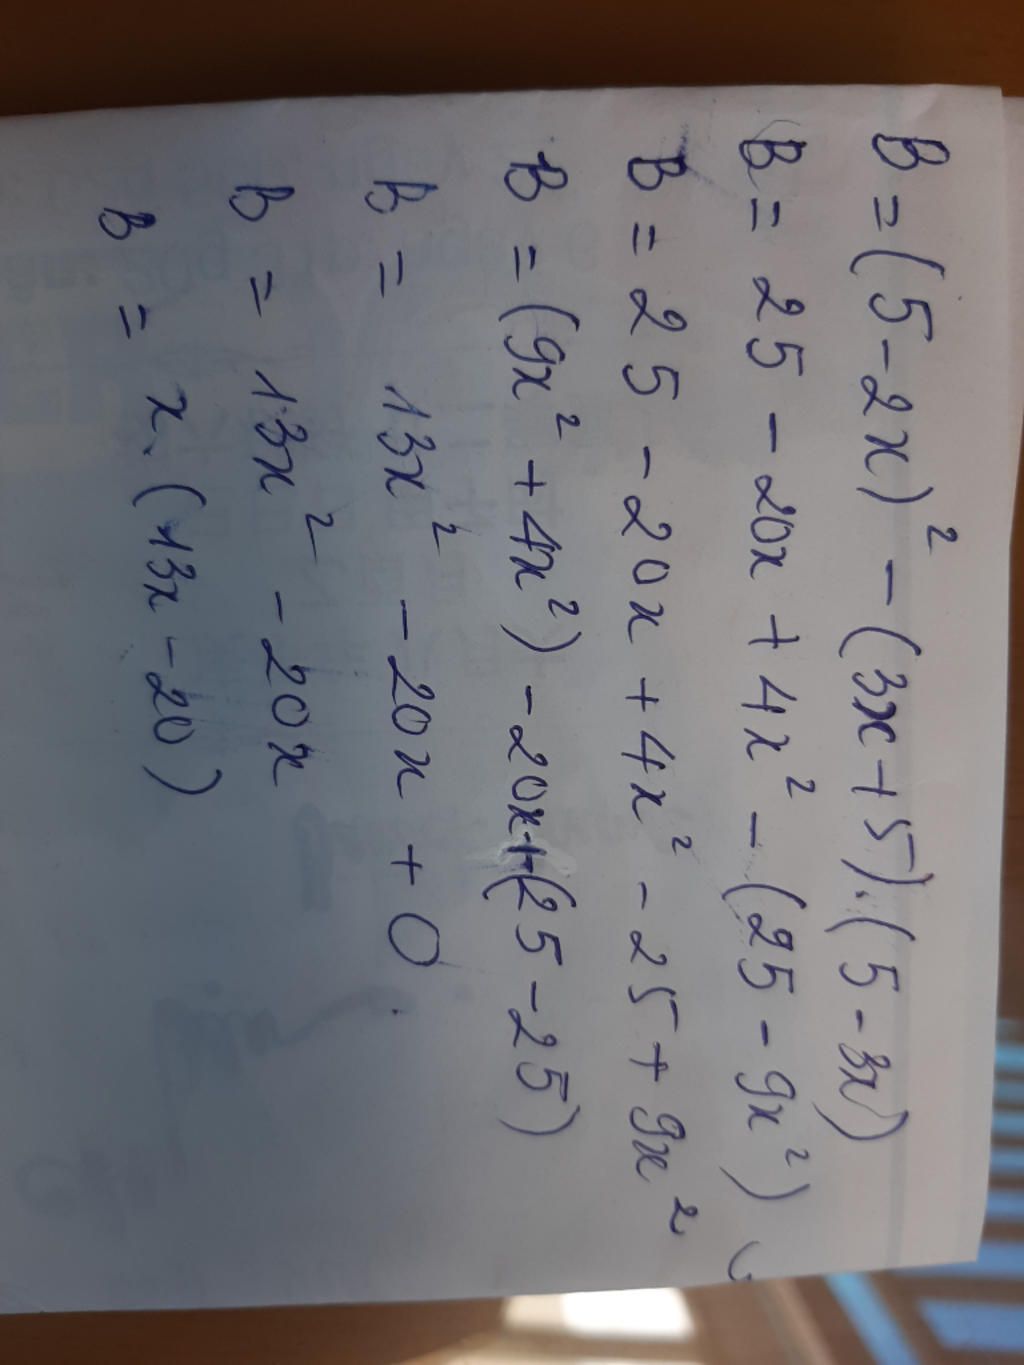 B = (5 - 2x)² - (3x + 5).(5 - 3x)
B = 25 - 20x + 4x² - (25 - 9x²)
B = 25 - 20x + 4x² - 25 + 9x²
B = (9x² + 4x²) - 20x + (25 - 25)
B = 13x² - 20x + 0.
B = 13x² - 20x
B = x.(13x - 20)